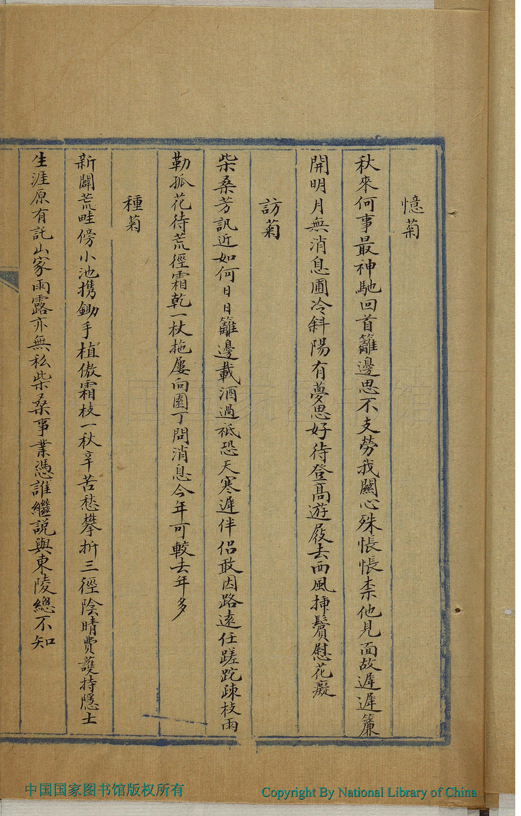 憶菊
秋來何事最神馳回首籬邊思不支勞我關心殊悵悵柰他見面故遲遲簾
開明月無消息圃冷斜陽有夢思好待登高遊屐去西風揷鬢慰花癡
訪菊
柴桑芳訊近如何日日籬邊載酒過祗恐天寒遲伴侶敢因路遠任蹉跎疎枝雨
勒孤花待荒徑霜乾一杖拖屢向園丁問消息今年可較去年多
種菊
新開荒畦傍小池携鋤手植傲霜枝一秋辛苦愁攀折三徑陰晴費護持隱士
生涯原有託山家雨露亦無私柴桑事業憑誰繼說與東陵總不知
中国国家图书馆版权所有
Copyright By National Library of China